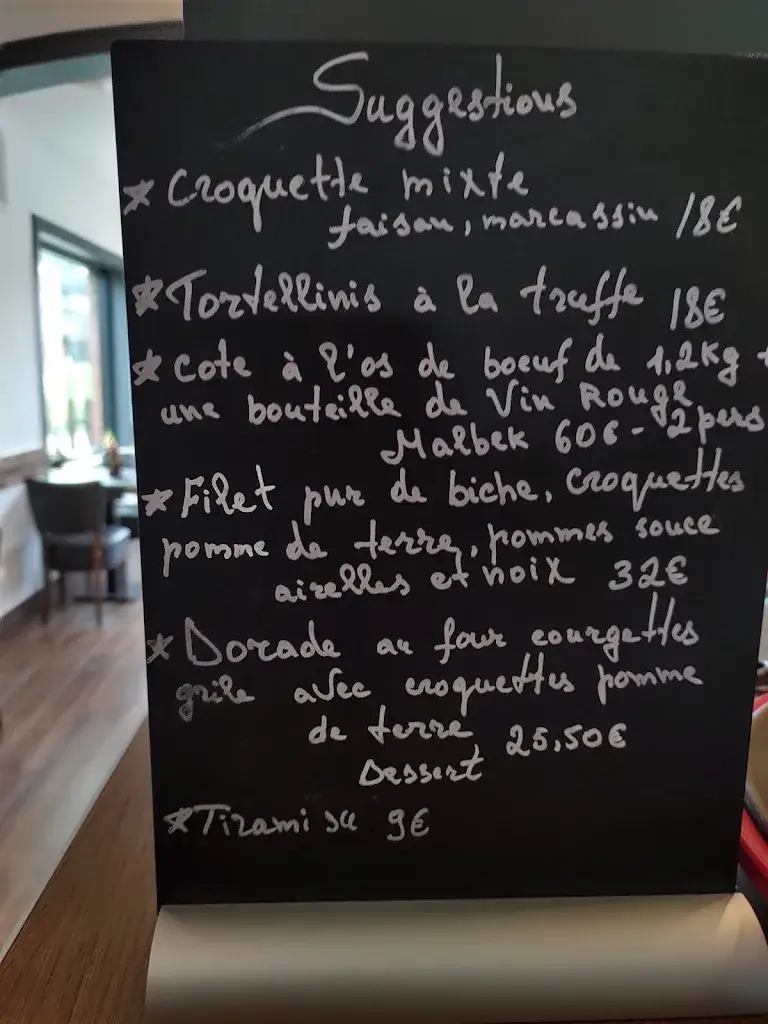 Suggestions
* Croquette mixte
faisan, marcassin 18€
* Tortellinis à la truffe 18€
* Cote à l'os de boeuf de 1,2kg +
une bouteille de Vin Rouge
Malbek 60€ - 2 pers
* Filet pur de biche, croquettes
pomme de terre, pommes souce
airelles et noix 32€
* Dorade au four courgettes
grile avec croquettes pomme
de terre 25,50€
Dessert
* Tirami su 9€